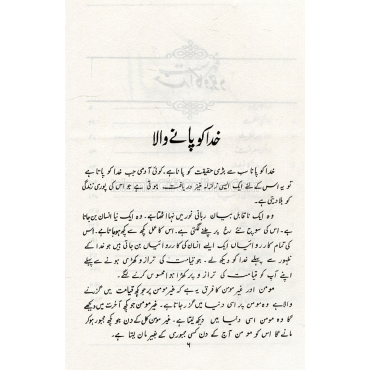 خدا کو پانے والا
خدا کو پانا سب سے بڑی حقیقت کو پانا ہے۔ کوئی آدمی جب خدا کو پاتا ہے
تو یہ اس کے لئے ایک ایسی زلزلہ خیز دریافت ہوتی ہے جو اس کی پوری زندگی
کو ہلا دیتی ہے۔
وہ ایک ناقابل بیان ربانی نور میں نہا اٹھتا ہے۔ وہ ایک نیا انسان بن جاتا
ہے۔ اس کی سوچ نئے رخ پر چلنے لگتی ہے۔ اس کا عمل کچھ سے کچھ ہو جاتا ہے۔ اس
کی تمام کارروائیاں ایک ایسے انسان کی کارروائیاں بن جاتی ہیں جو خدا کے
ظہور سے پہلے خدا کو دیکھ لے۔ جو قیامت کی ترازو کھڑی ہونے سے پہلے
اپنے آپ کو قیامت کی ترازو پر کھڑا ہوا محسوس کرنے لگے۔
مومن اور غیر مومن کا فرق یہ ہے کہ غیر مومن پر جو کچھ قیامت میں گزرنے
والا ہے وہ مومن پر اسی دنیا میں گزر جاتا ہے۔ غیر مومن جو کچھ آخرت میں دیکھے
گا وہ مومن اسی دنیا میں دیکھ لیتا ہے۔ غیر مومن کل کے دن جو کچھ مجبور ہو کر
مانے گا اس کو مومن آج کے دن کسی مجبوری کے بغیر مان لیتا ہے۔